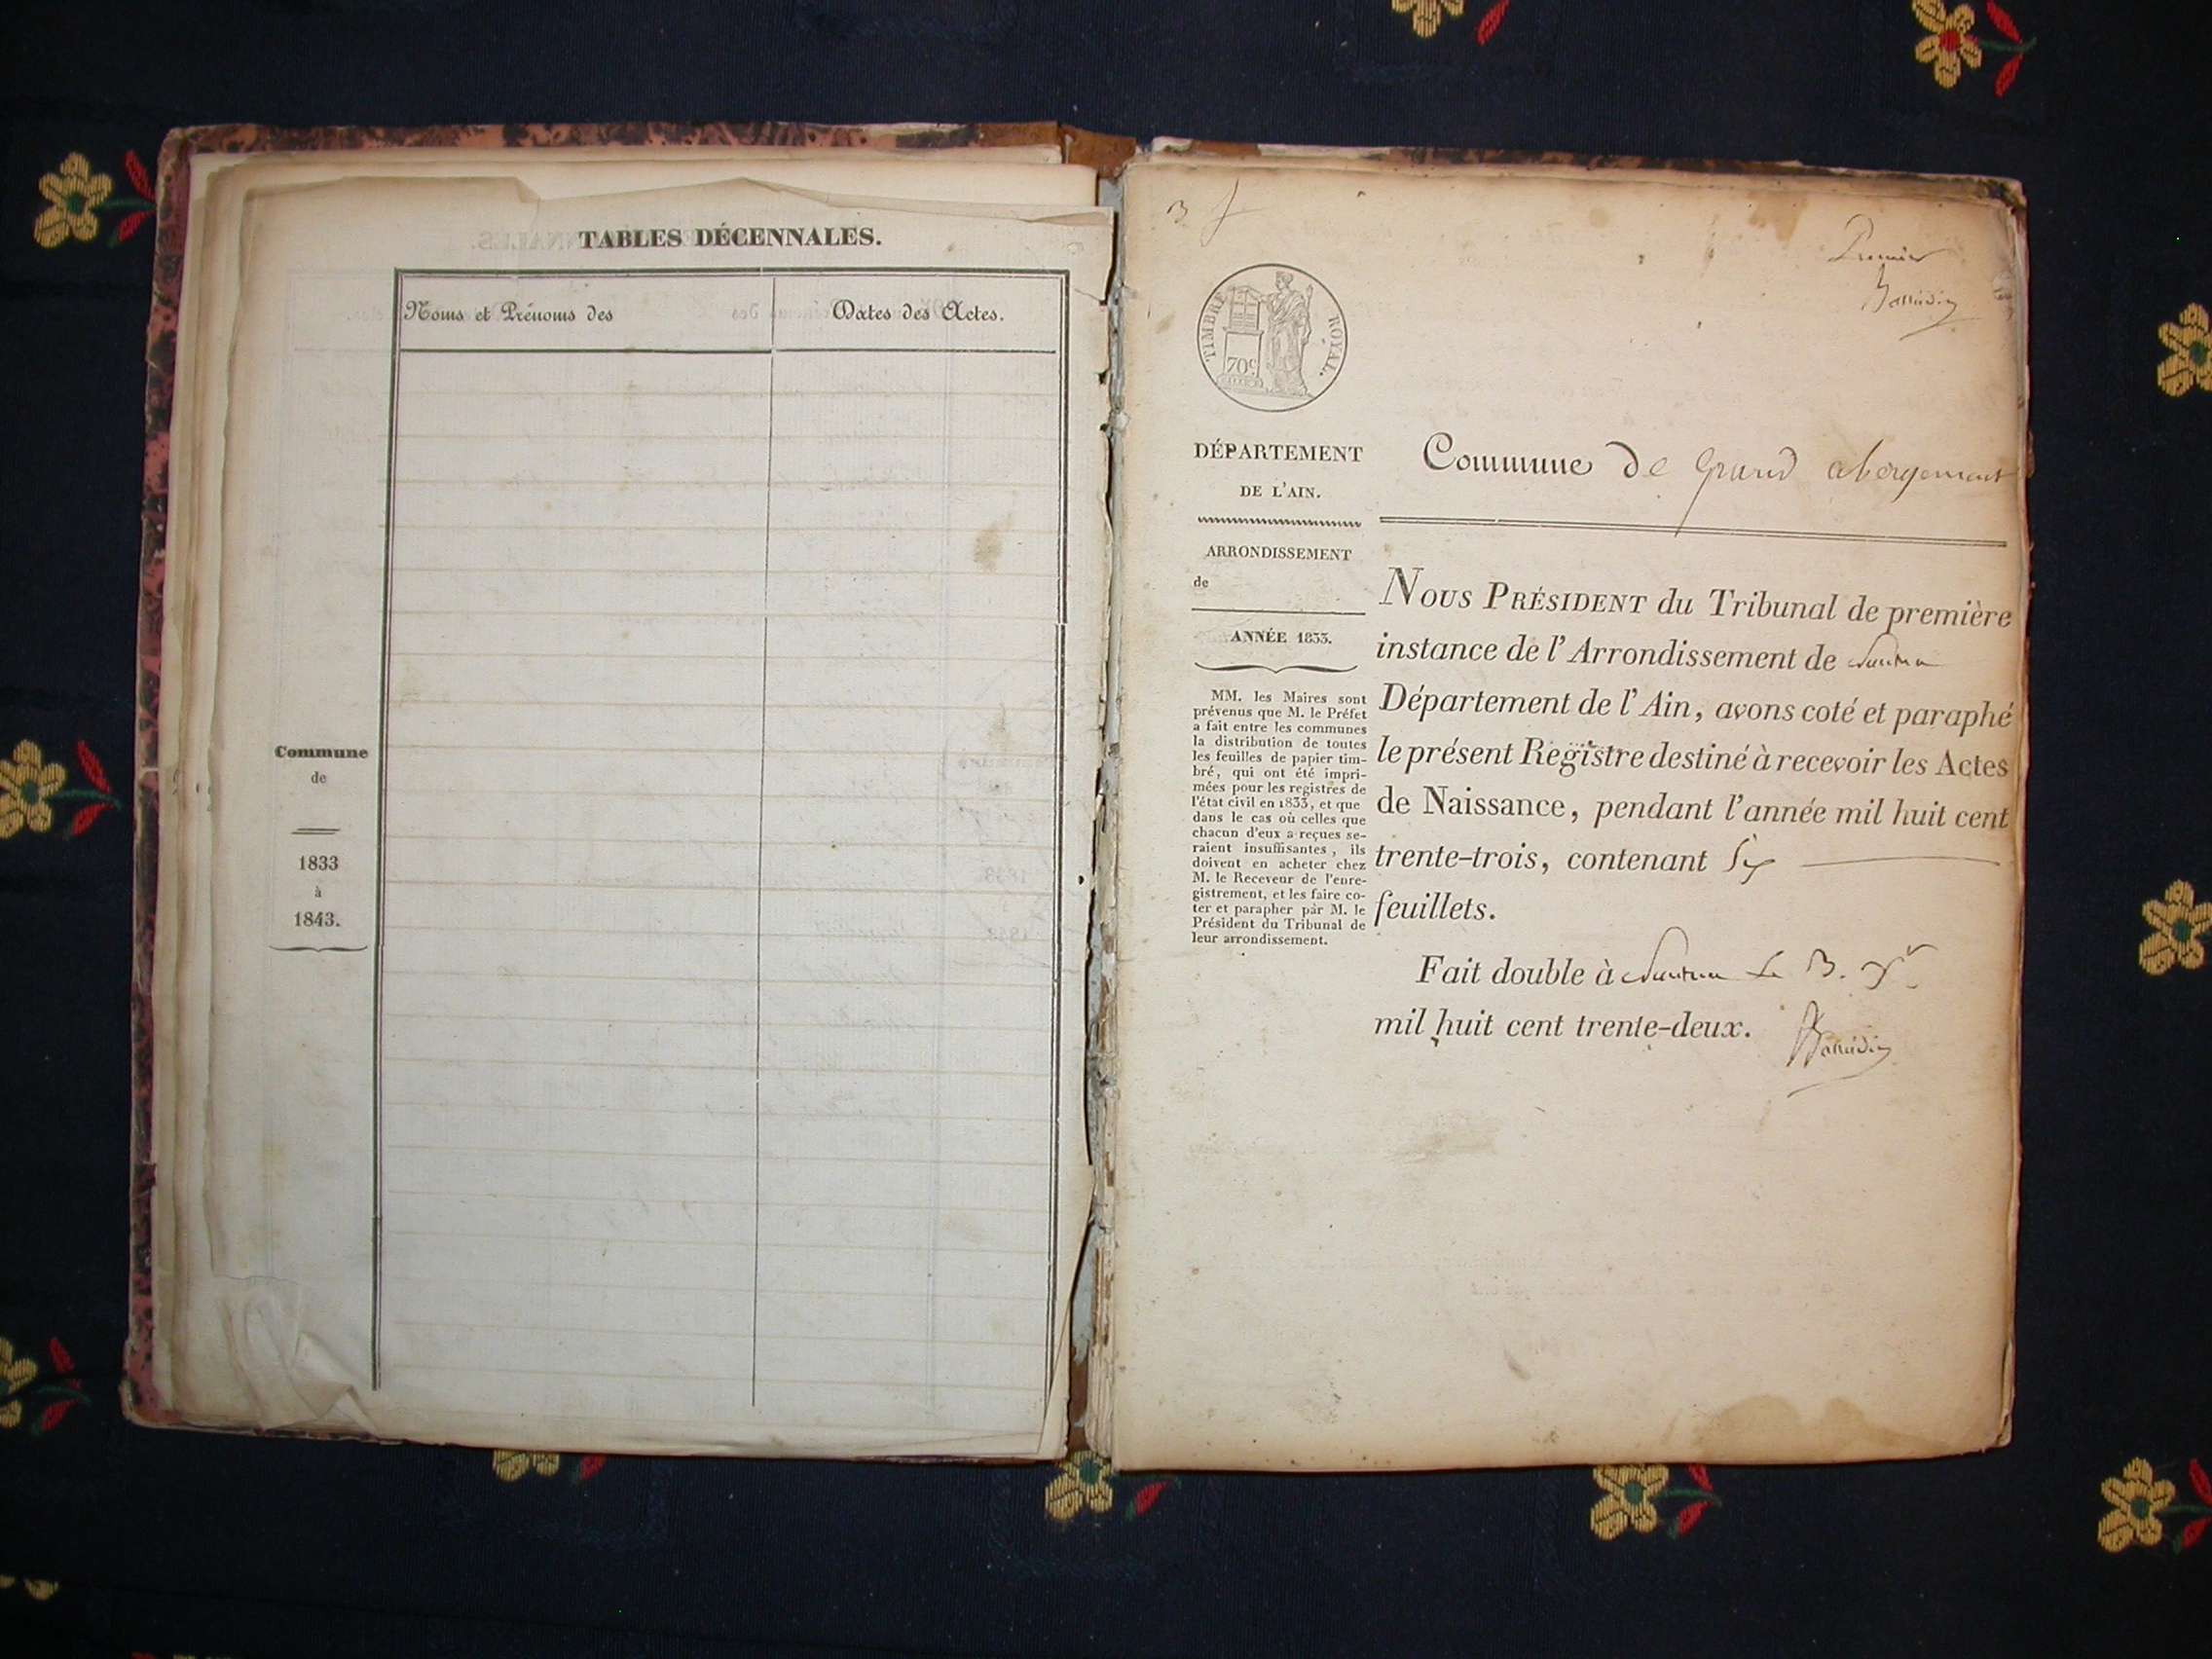 TABLES DÉCENNALES.
Noms et Prénoms des
Dates des Actes.
Commune
de
1833
à
1843.
Premier
TIMBRE ROYAL.
70c
DÉPARTEMENT
DE L'AIN.
ARRONDISSEMENT
de
ANNÉE 1833.
MM. les Maires sont
prévenus que M. le Préfet
a fait entre les communes
la distribution de toutes
les feuilles de papier tim-
bré, qui ont été impri-
mées pour les registres de
l'état civil en 1833, et que
dans le cas où celles que
chacun d'eux a reçues se-
raient insuffisantes, ils
doivent en acheter chez
M. le Receveur de l'enre-
gistrement, et les faire co-
ter et parapher par M. le
Président du Tribunal de
leur arrondissement.
Commune de Grand abergement
NOUS PRÉSIDENT du Tribunal de première
instance de l'Arrondissement de Nantua
Département de l'Ain, avons coté et paraphé
le présent Registre destiné à recevoir les Actes
de Naissance, pendant l'année mil huit cent
trente-trois, contenant Six
feuillets.
Fait double à Nantua Le
mil huit cent trente-deux.